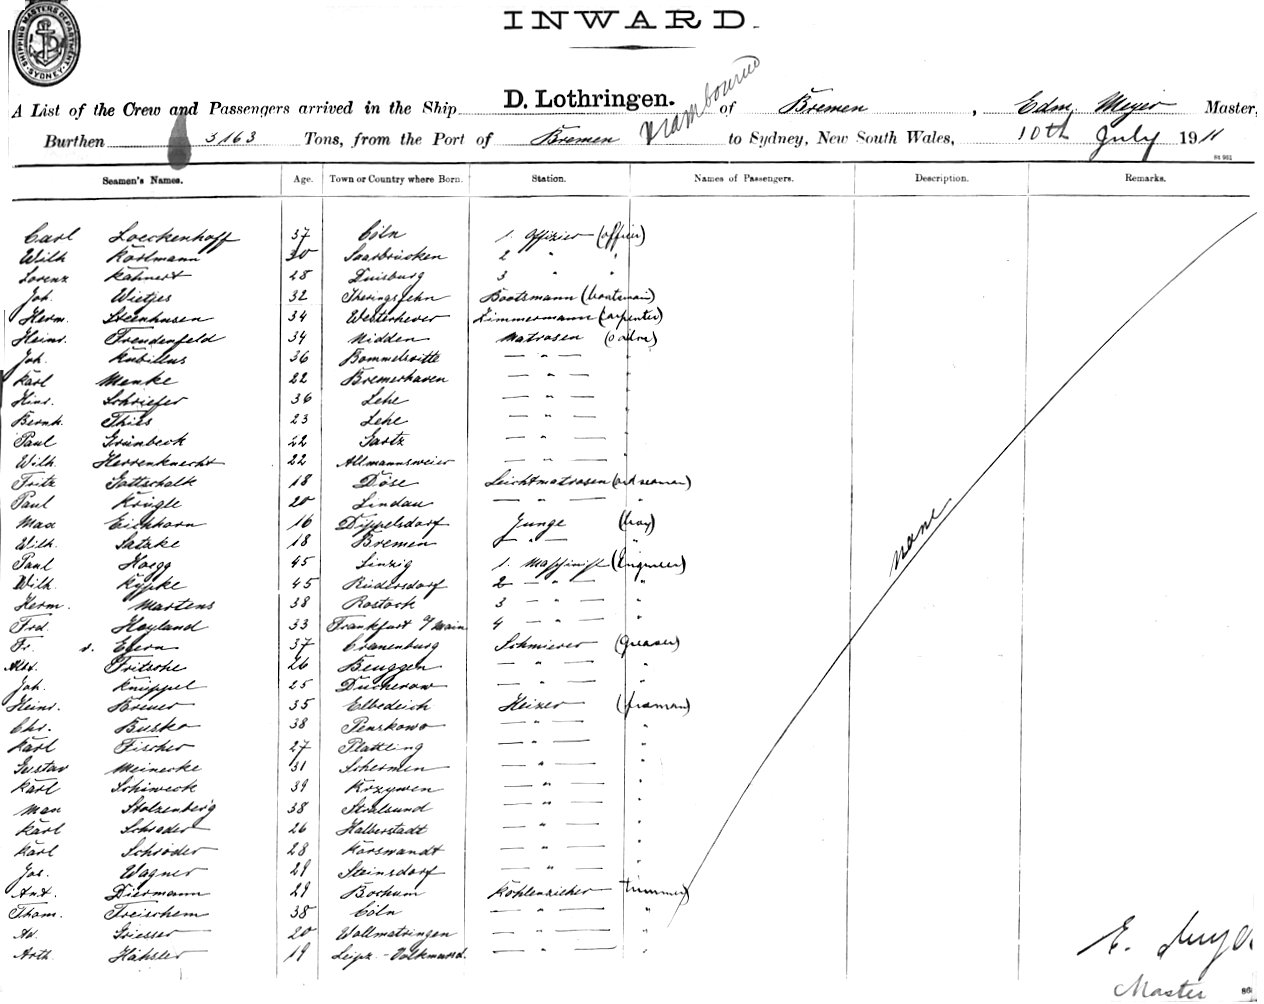 SHIPPING MASTERS DEPARTMENT SYDNEY
INWARD.
A List of the Crew and Passengers arrived in the Ship D. Lothringen. of Bremen, Edm. Meyer Master,
Burthen 5163 Tons, from the Port of Bremen to Sydney, New South Wales, 10th July 1911
Seamen's Names. Age. Town or Country where Born. Station. Names of Passengers. Description. Remarks.
Carl Loeckenhoff 37 Cöln 1. Offizier (officer)
Wilh Korlmann 30 Saarbrücken 2 " "
Lorenz Kahnert 28 Duisburg 3 " "
Joh. Wietjes 32 Iheringsfehn Bootsmann (boatswain)
Herm. Steenhusen 34 Westerhever Zimmermann (carpenter)
Heinr. Freudenfeld 34 Nidden Matrosen
Joh. Kubillus 36 Bommelsvitte — " — "
Karl Menke 22 Bremerhaven — " — "
Hinr. Schriefer 36 Lehe — " — "
Bernh. Thies 23 Lehe — " — "
Paul Grünbeck 22 Gartz — " — "
Wilh. Herrenknecht 22 Allmannsweier — " — "
Fritz Gattschalk 18 Döse Leichtmatrosen (ord seaman)
Paul Krügle 20 Lindau — " — "
Max Eichhorn 16 Dippelsdorf Junge (boy)
Wilh. Satake 18 Bremen — " — "
Paul Hoegg 45 Sinzig 1. Maschinist (Engineer)
Wilh. Kypke 45 Rüdersdorf 2 — " — "
Herm. Martens 38 Rostock 3 — " — "
Frd. Hoyland 33 Frankfurt a/Main 4 — " — "
Fr. v. Efern 37 Cranenburg Schmierer (Greaser)
Albt. Fritsche 26 Beuggen — " — "
Joh. Knüppel 25 Ducherow — " — "
Heinr. Bremer 35 Elbdeich Heizer (fireman)
Chr. Busko 38 Penskowo — " — "
Karl Fischer 27 Plattling — " — "
Gustav Meinecke 31 Schermen — " — "
Karl Schiweck 39 Krzywen — " — "
Max Stolzenberg 38 Stralsund — " — "
Karl Schrader 26 Halberstadt — " — "
Karl Schröder 28 Karswandt — " — "
Jos. Wagner 29 Steinsdorf — " — "
Ant. Diermann 29 Bochum Kohlenzieher trimmer)
Thom. Freischem 38 Cöln — " — "
Ad. Griesser 20 Wollmatingen — " — "
Arth. Hähsler 19 Leipz.-Volkmarsd. — " —
none
E. Meyer
Master